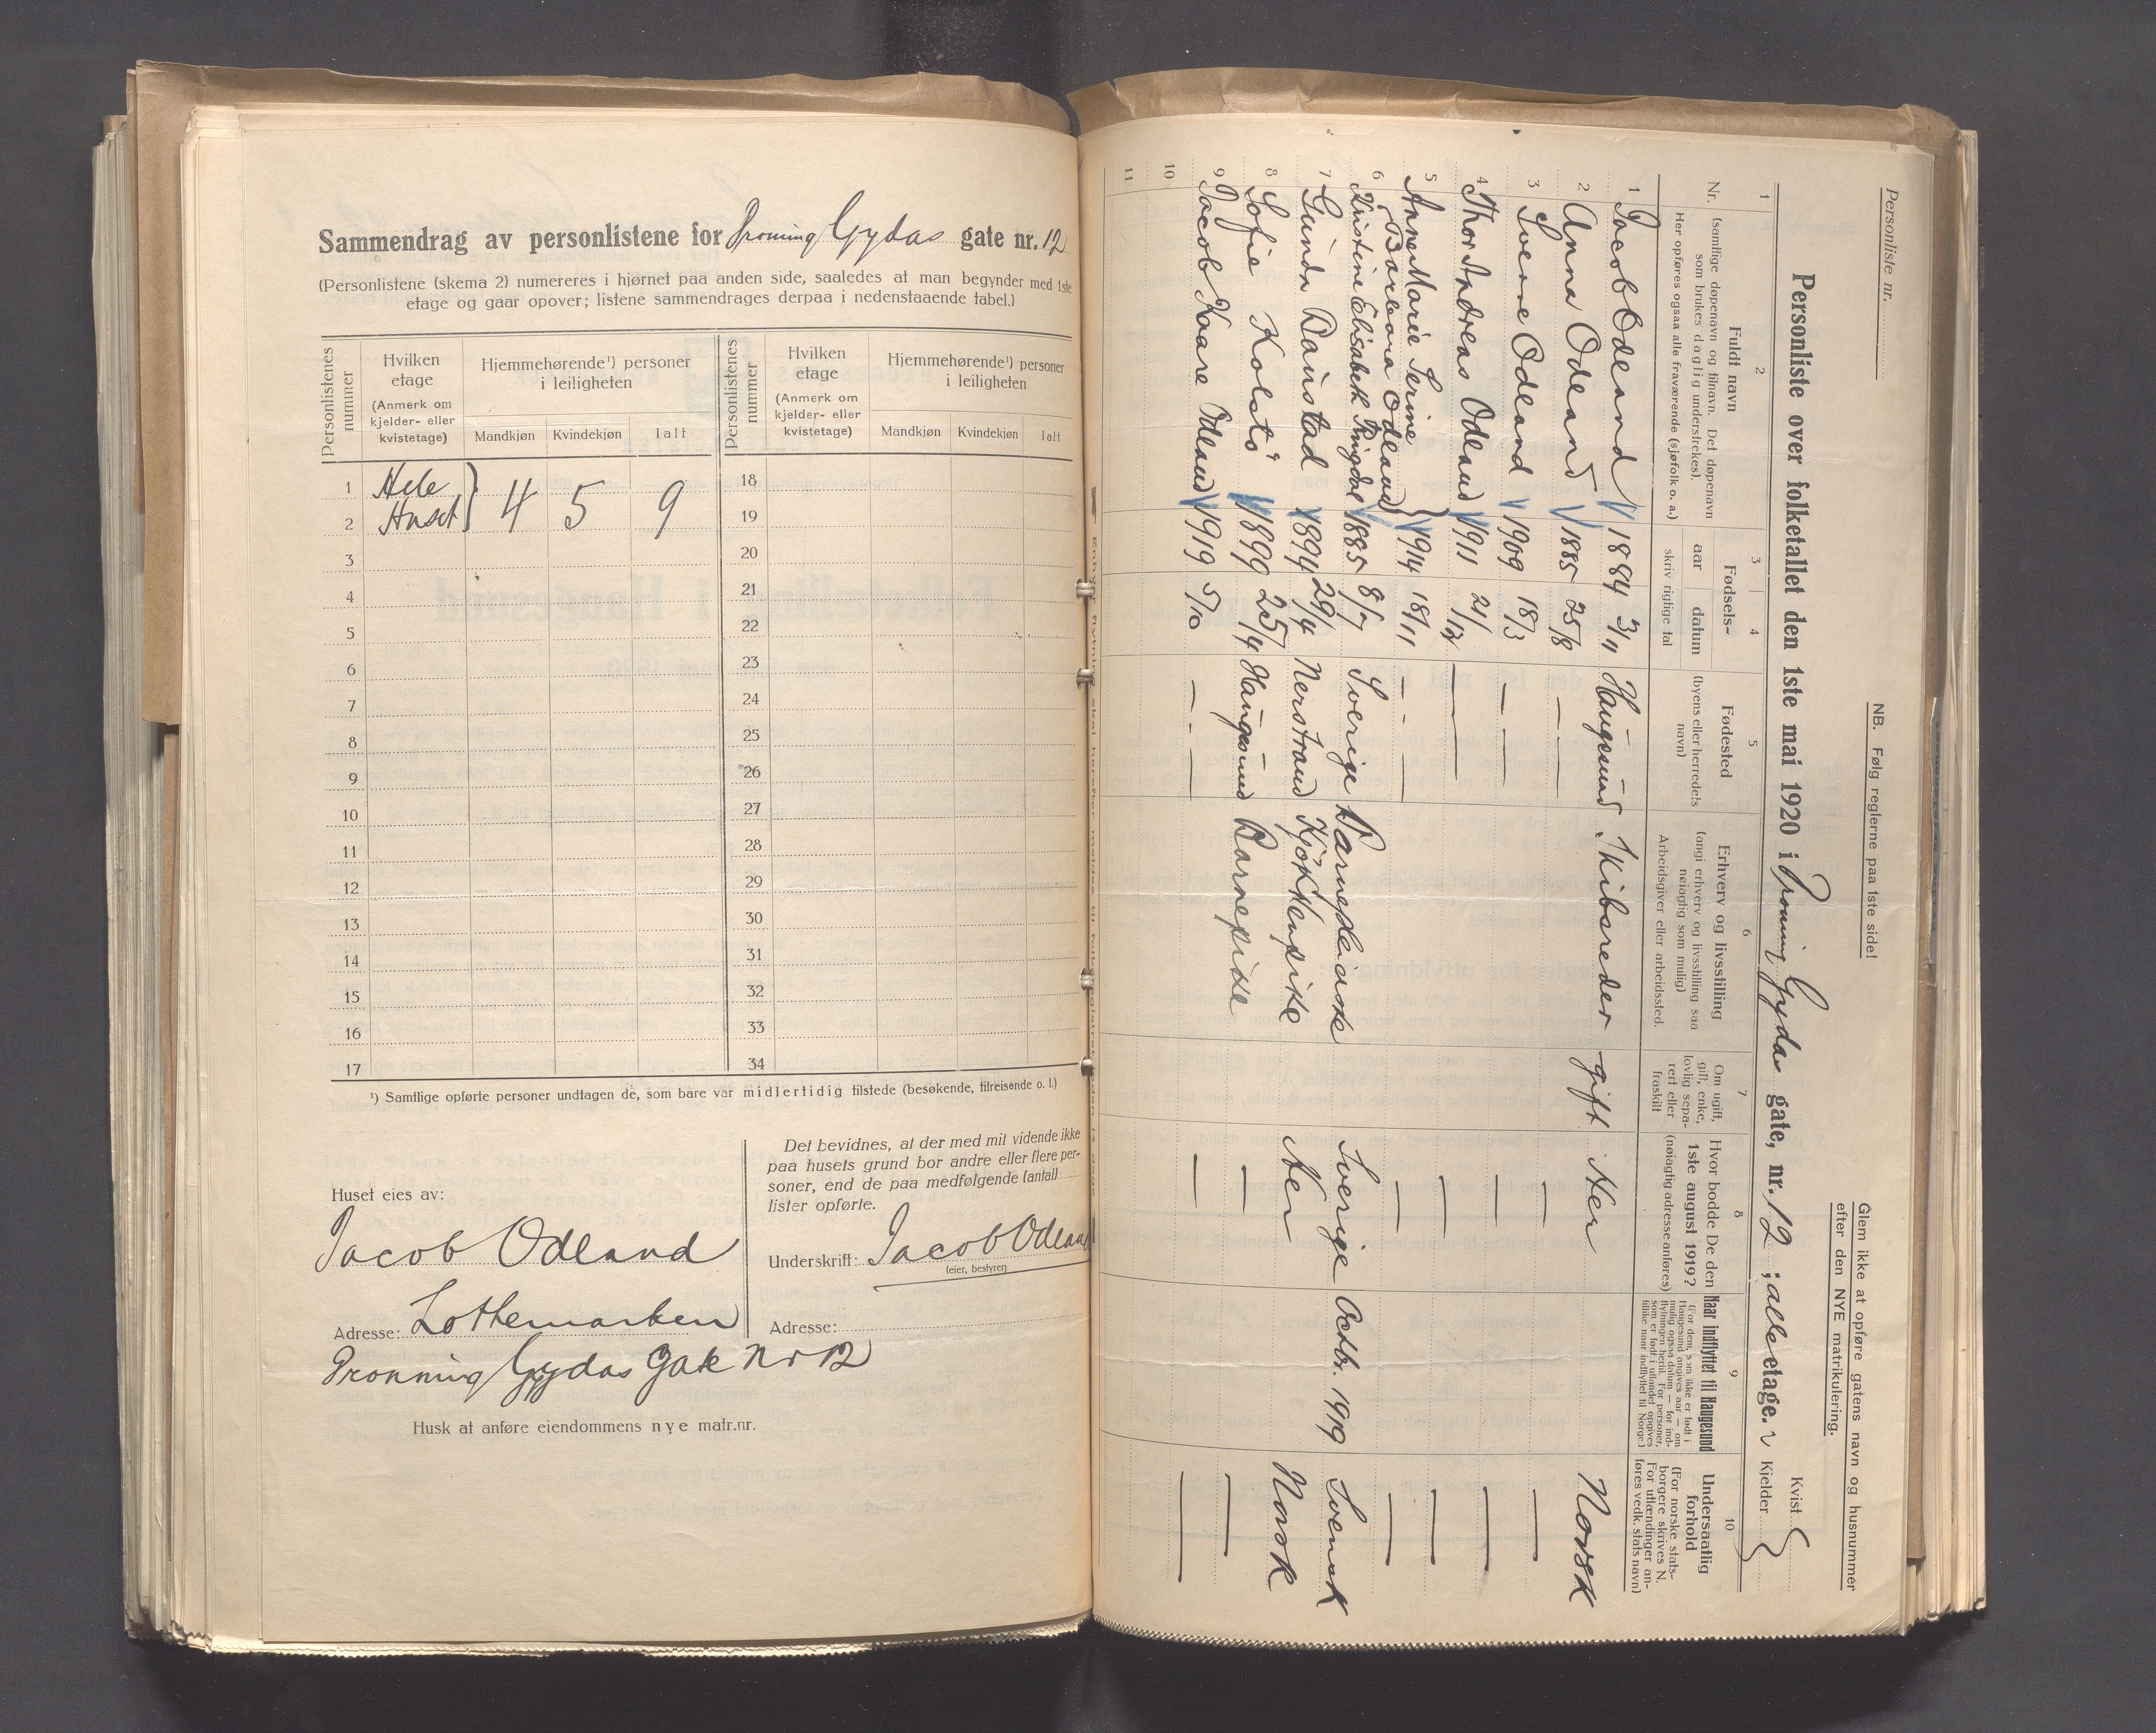 Sammendrag av personlistene for Dronning Gydas gate nr. 12
(Personlistene (skema 2) numereres i hjørnet paa anden side, saaledes at man begynder med 1ste
etage og gaar opover; listene sammendrages derpaa i nedenstaaende tabel.)
Personlistenes nummer
Hvilken etage (Anmerk om kjelder- eller kvistetage)
Hjemmehørende¹) personer i leiligheten
Mandkjøn Kvindekjøn Ialt
Personlistenes nummer
Hvilken etage (Anmerk om kjelder- eller kvistetage)
Hjemmehørende¹) personer i leiligheten
Mandkjøn Kvindekjøn Ialt
1 Hele 18
2 Huset } 4 5 9 19
3 20
4 21
5 22
6 23
7 24
8 25
9 26
10 27
11 28
12 29
13 30
14 31
15 32
16 33
17 34
¹) Samtlige opførte personer undtagen de, som bare var midlertidig tilstede (besøkende, tilreisende o. l.)
Huset eies av:
Jacob Odland
Adresse: Lothemarken
Dronning Gydas Gate Nr 12
Det bevidnes, at der med mit vidende ikke
paa husets grund bor andre eller flere per-
soner, end de paa medfølgende (antal)
lister opførte.
Underskrift: Jacob Odland
(eier, bestyrer)
Adresse:
Husk at anføre eiendommens nye matr.nr.
Personliste nr.
NB. Følg reglerne paa 1ste side!
Glem ikke at opføre gatens navn og husnummer
efter den NYE matrikulering.
Personliste over folketallet den 1ste mai 1920 i Dronning Gydas gate, nr. 12 ; alle etage.
Kvist
Kjelder
1 2 3 4 5 6 7 8 9 10
Nr.
Fuldt navn
(samtlige døpenavn og tilnavn. Det døpenavn
som brukes daglig understrekes).
Her opføres ogsaa alle fraværende (sjøfolk o. a.)
Fødsels-
aar datum
skriv rigtige tal
Fødested
(byens eller herredets
navn)
Erhverv og livsstilling
(angi erhverv og livsstilling saa
nøiagtig som mulig)
Arbeidsgiver eller arbeidssted.
Om ugift,
gift, enke,
lovlig sepa-
rert eller
fraskilt
Hvor bodde De den
1ste august 1919?
(nøiagtig adresse anføres)
Naar indflyttet til Haugesund
(For dem, som ikke er født i
Haugesund angives aar — om
mulig ogsaa datum — for ind-
flytningen hertil. For personer,
som er født i utlandet opgives
tillike naar indflyttet til Norge.)
Undersaatlig
forhold
(For norske stats-
borgere skrives N.
For utlændinger an-
føres vedk. stats navn)
1 Jacob Odland 1884 3/11 Haugesund Skibsreder gift Her Norsk
2 Anna Odland 1885 25/8 — — — —
3 Sverre Odland 1909 18/3 — — — —
4 Thor Andreas Odland 1911 21/12 — — —
5 Anne Marie Serine
Barbara Odland } 1914 18/11 — — — —
6 Kristine Elisabeth Ringdal 1885 8/7 Sverige Barnepleierske Sverige Octbr. 1919 Svensk
7 Gunda Baustad 1894 29/4 Nerstrand Kjøkkenpike Her Norsk
8 Sofie Kolstø 1899 25/4 Haugesund Barnepike — —
9 Jacob Kaare Odland 1919 5/10 — — — —
10
11